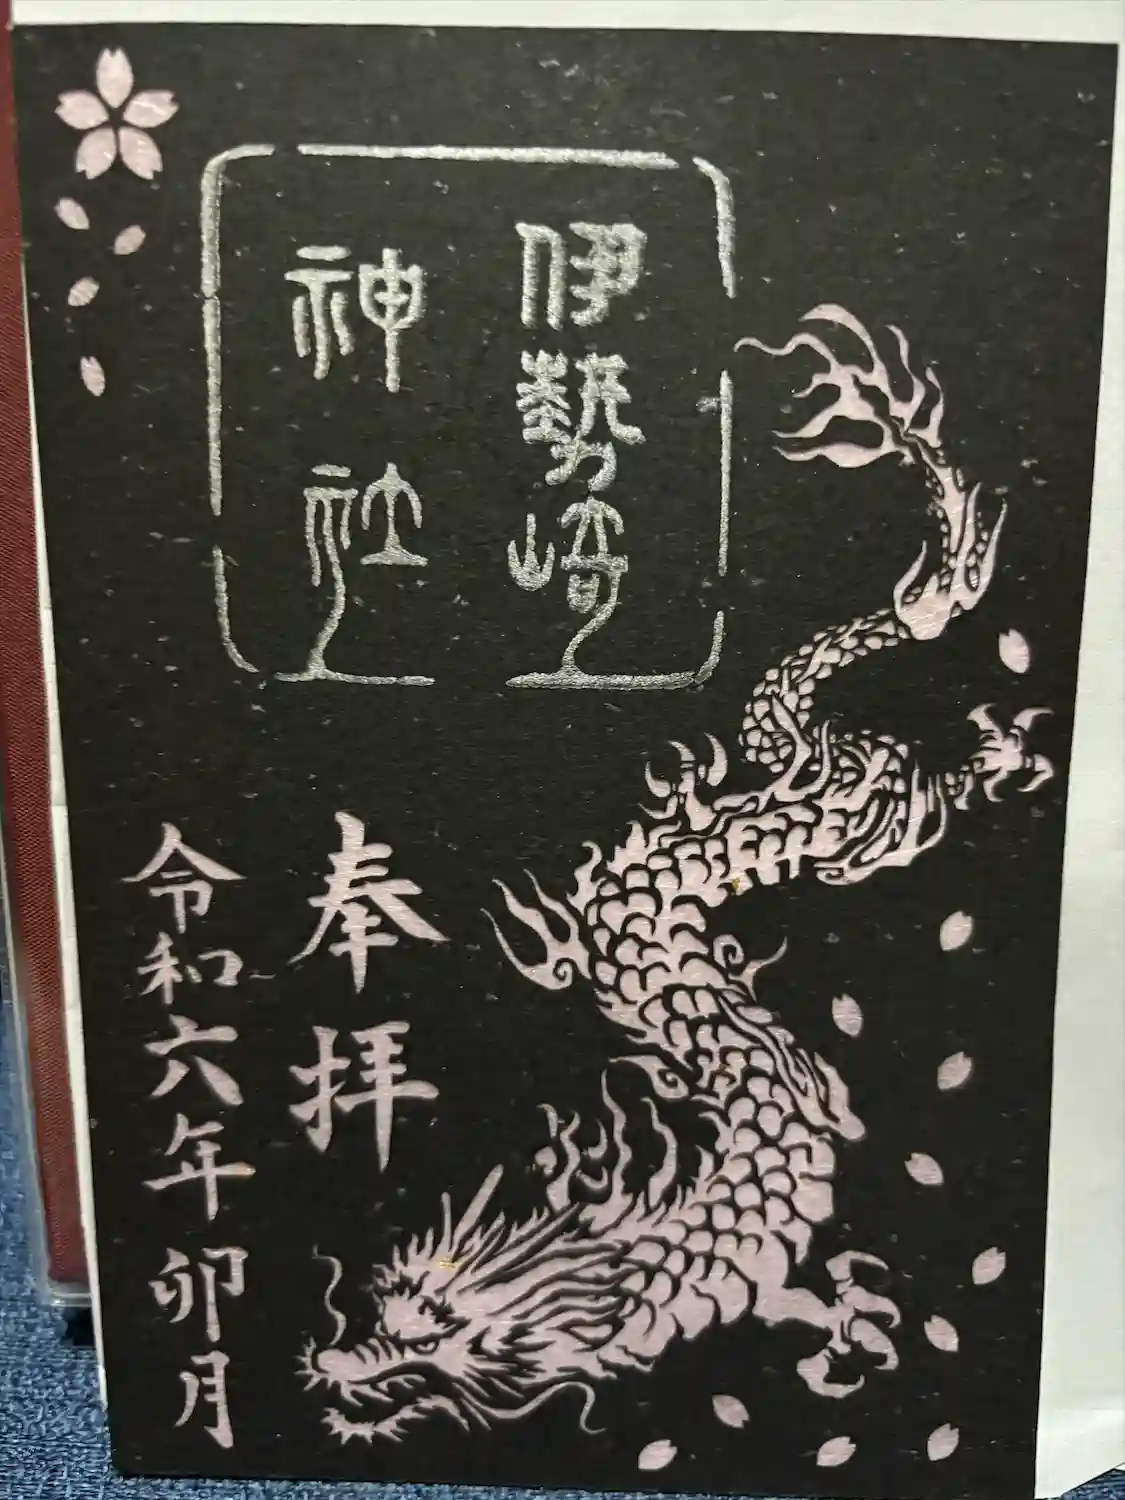 伊勢崎
神社
奉拝
令和六年卯月